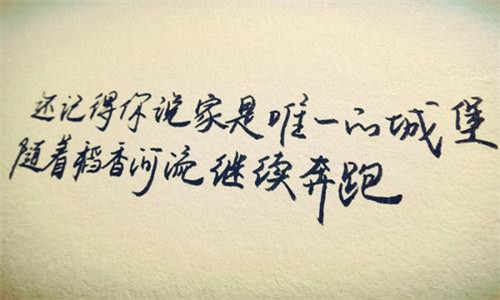 还记得你说家是唯一的城堡
随着稻香河流继续奔跑